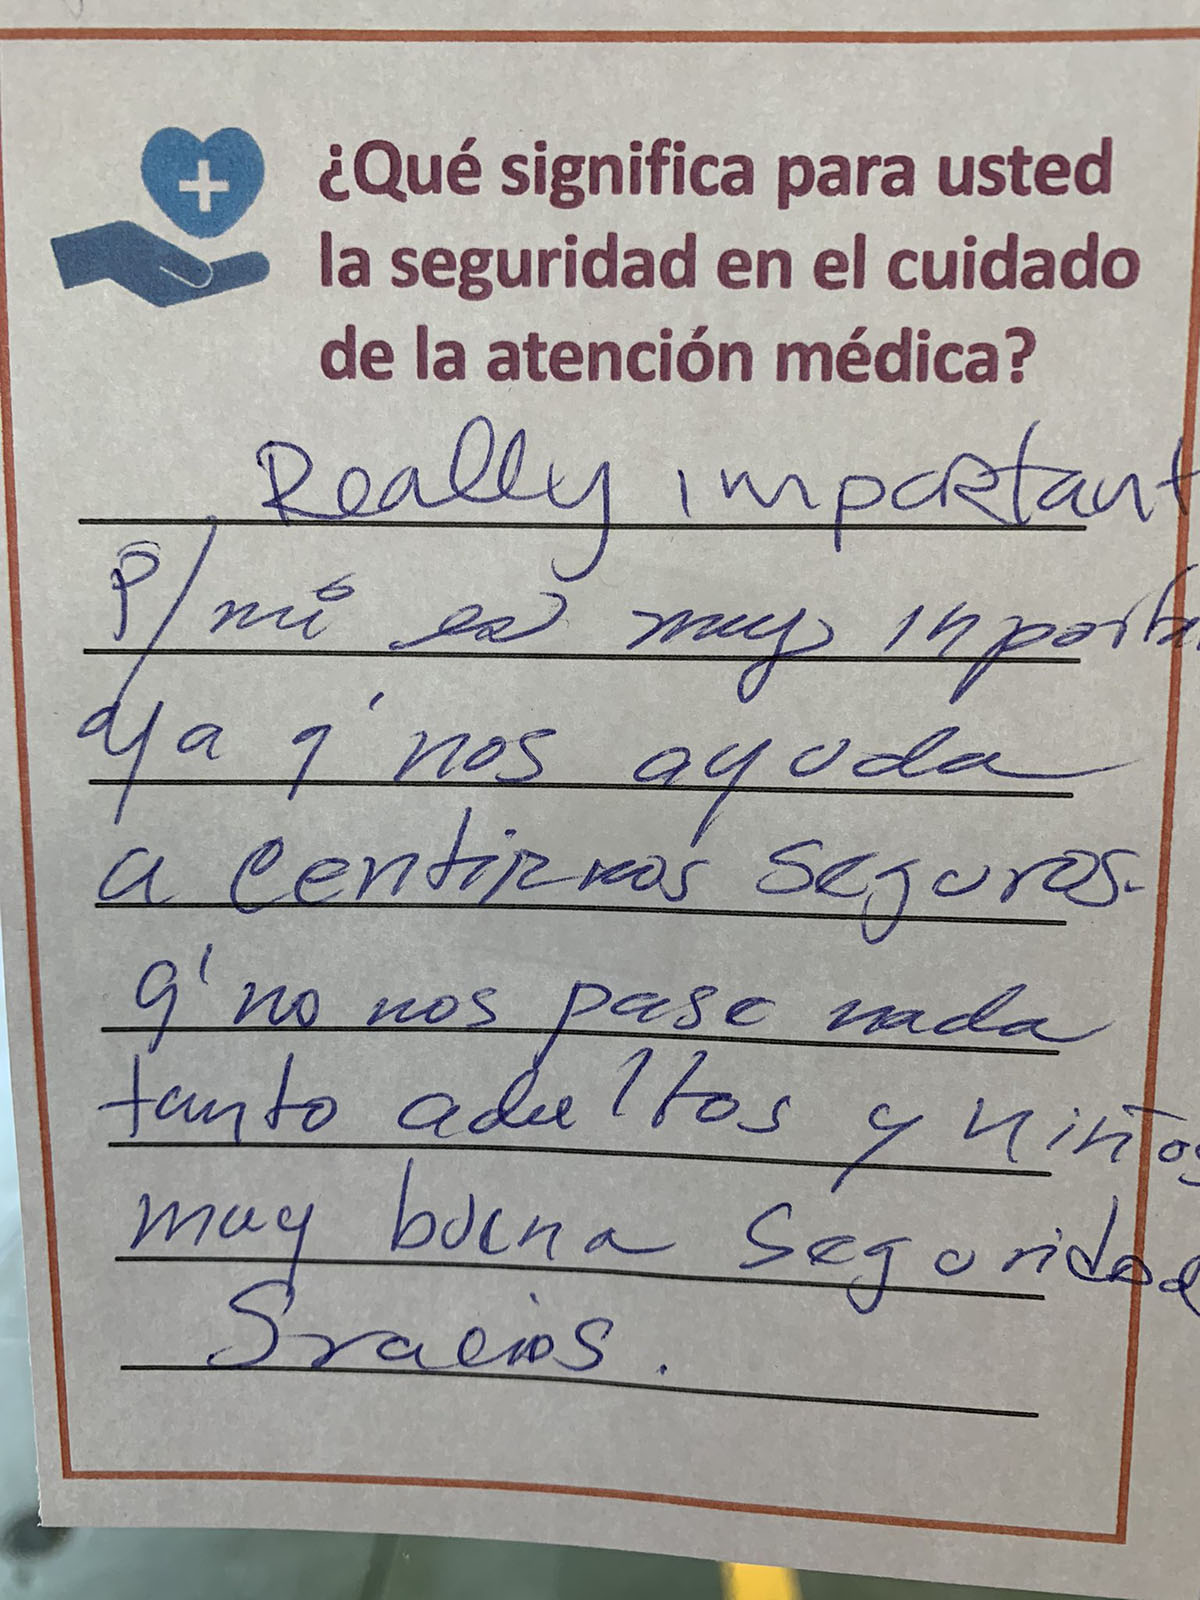 ¿Qué significa para usted
la seguridad en el cuidado
de la atención médica?
Really important
P/mi es muy inporta
Ya q' nos ayuda
a centirnos seguros.
q' no nos pase nada
tanto adultos y niños
muy buena seguridad
Gracias.